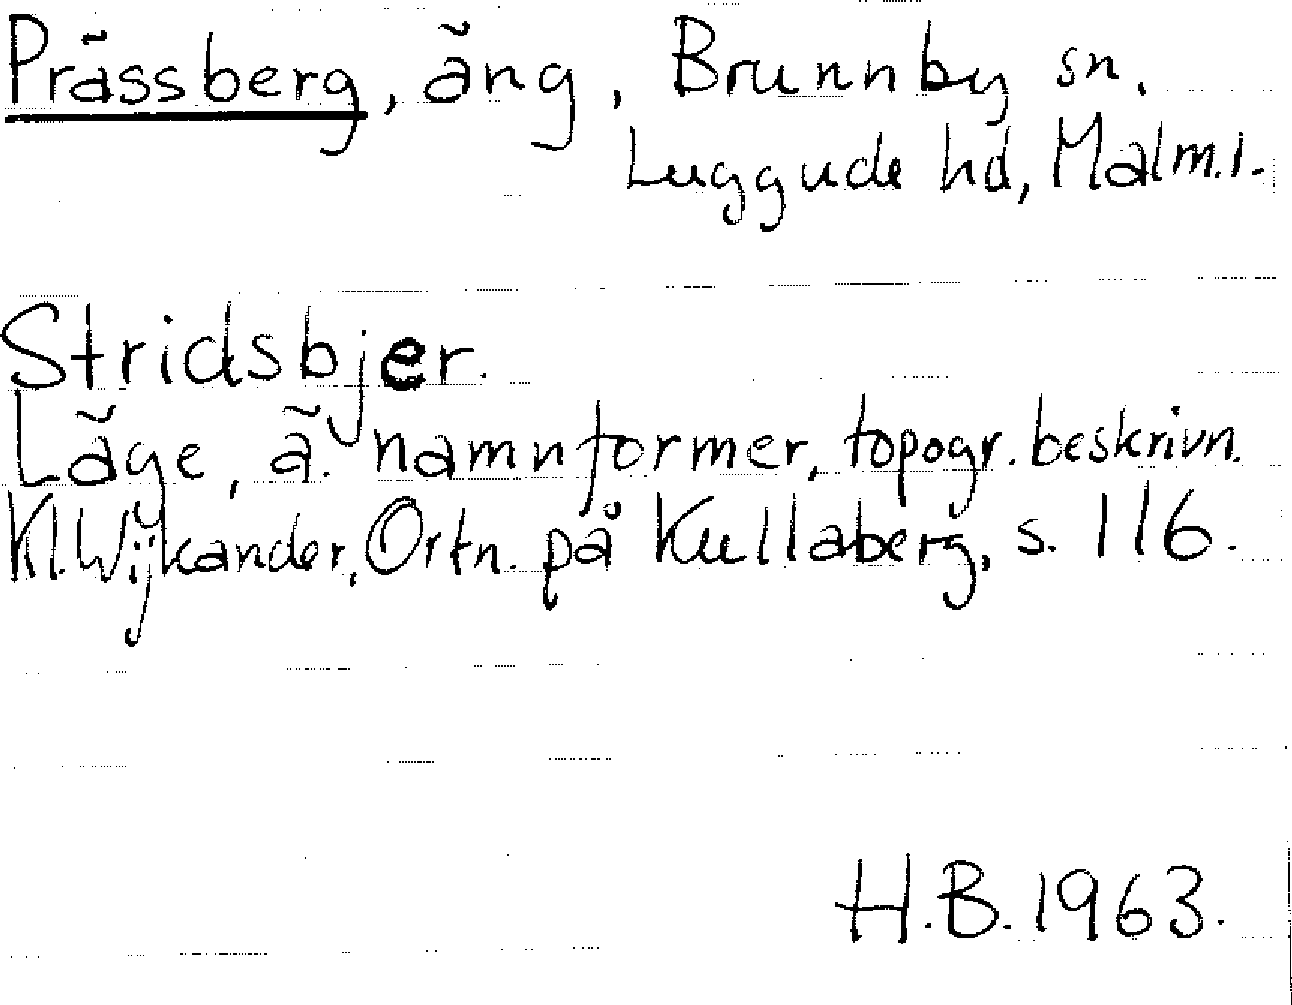 Prässberg, äng, Brunnby sn.
Luggude hd, Malm.l.
Stridsbjer.
Läge, ä. namnformer, topogr. beskrivn.
Kl. Wijkander, Ortn. på Kullaberg, s. 116.
H.B. 1963.